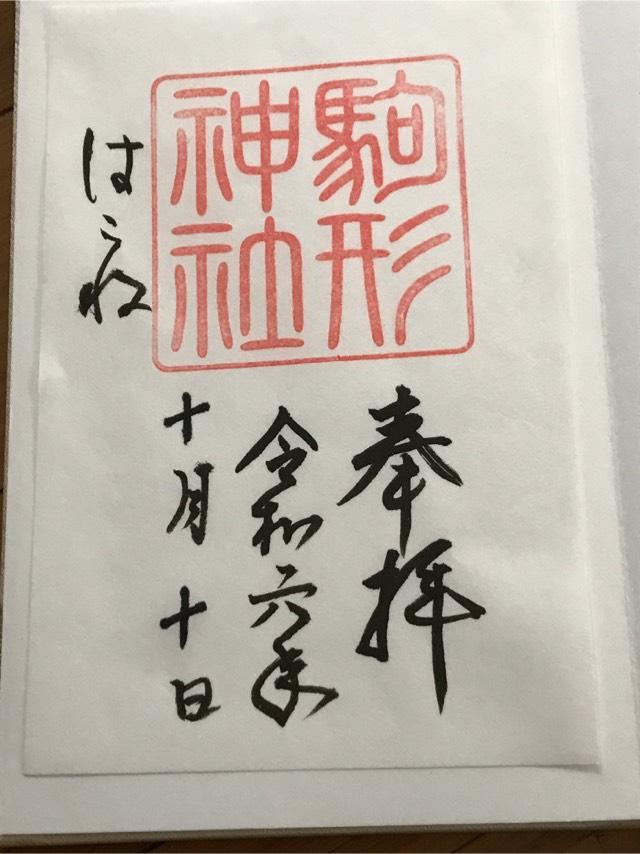 駒形
神社
奉拝
令和六年
十月十日
はこね